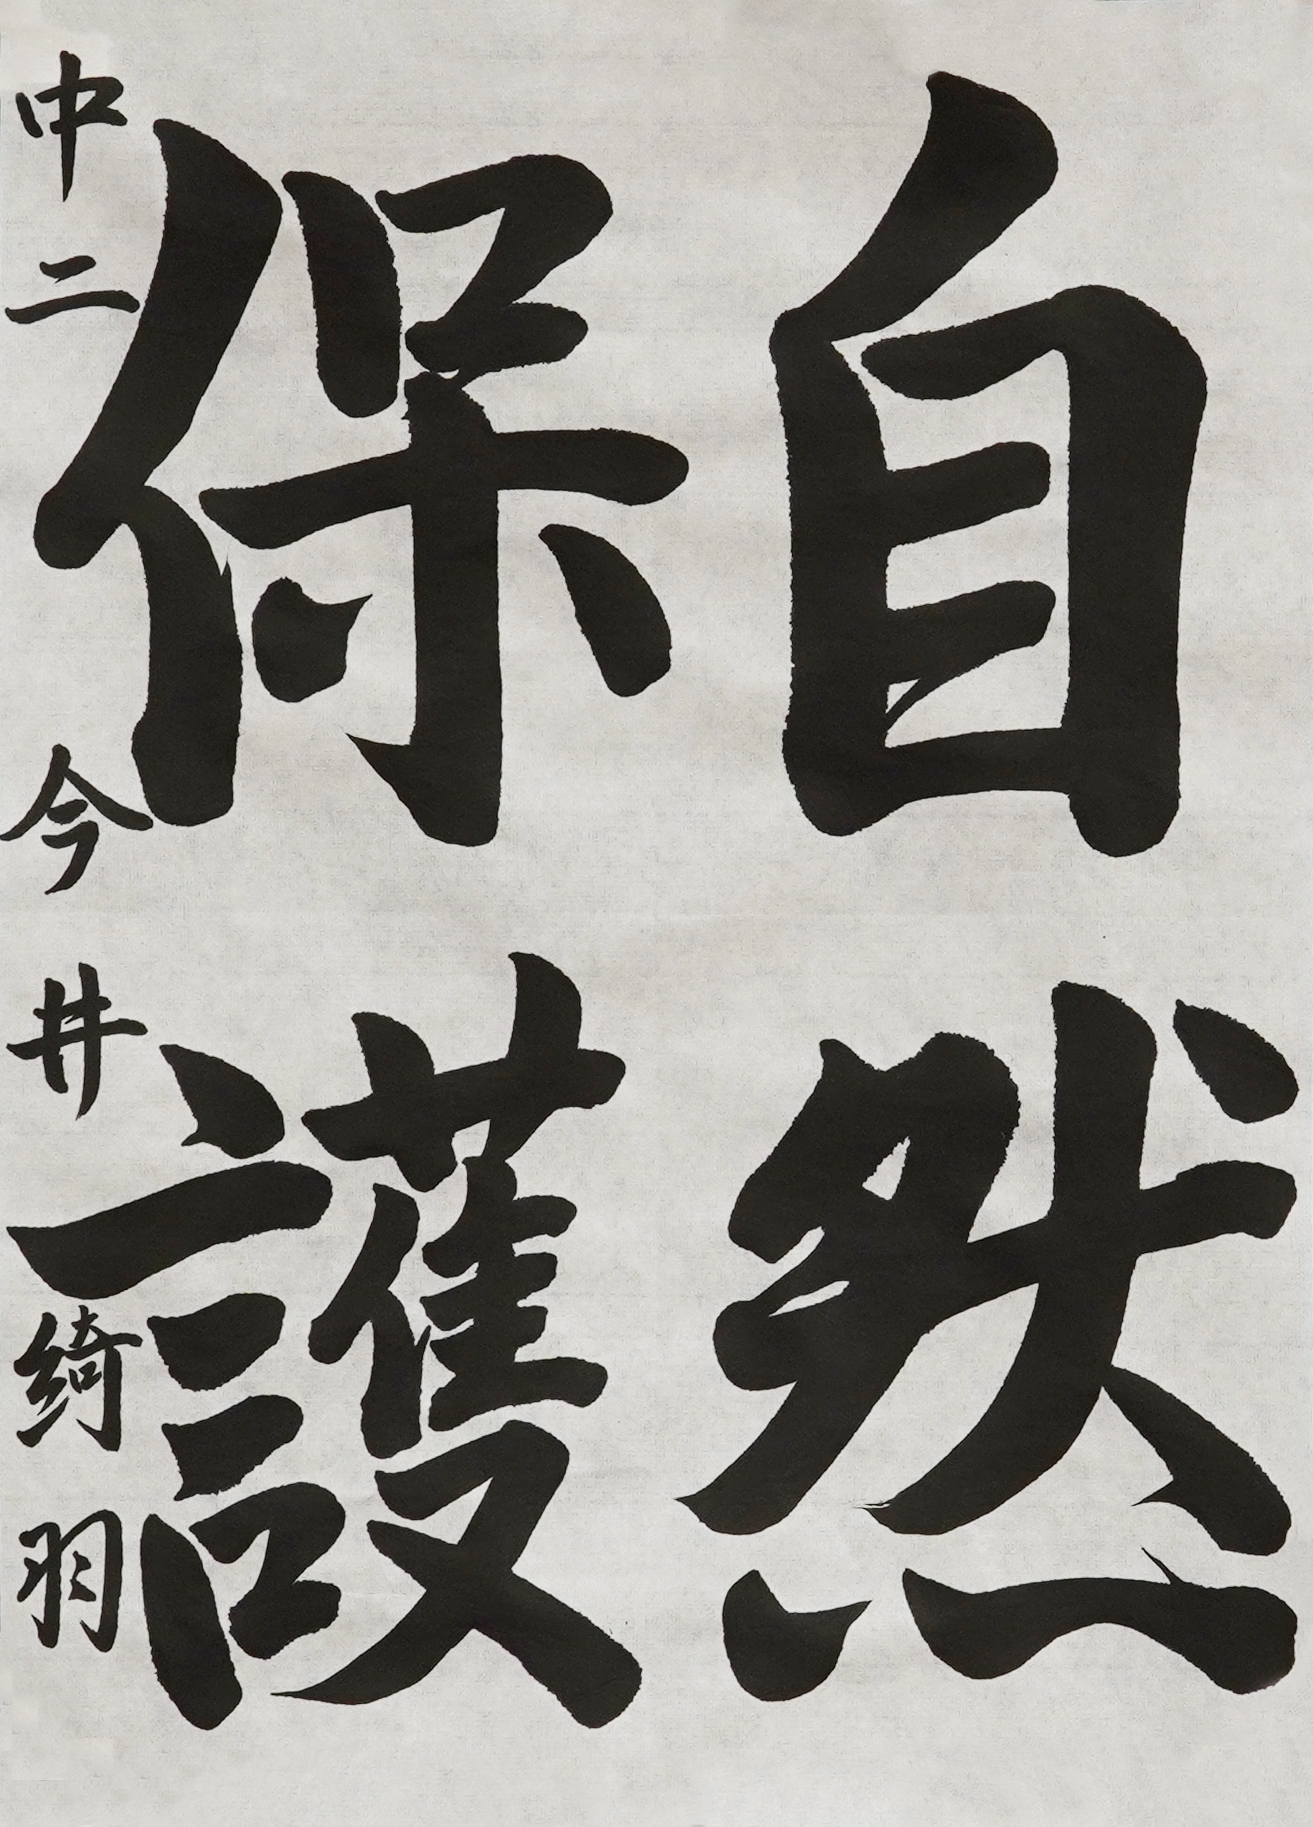 自然
保護
中二 今井綺羽